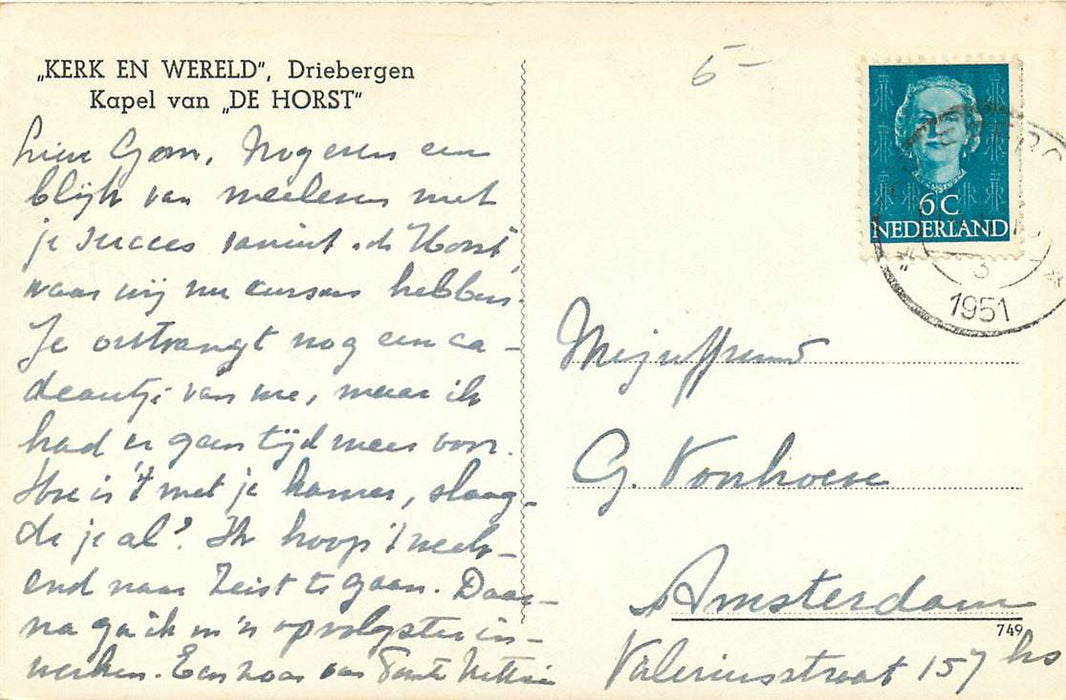 „KERK EN WERELD”, Driebergen
Kapel van „DE HORST”
Nog even een
blijk van meeleven met
je succes vanuit „de Horst”,
waar wij nu cursus hebben.
Je ontvangt nog een ca-
deautje van me, maar ik
had er geen tijd meer voor.
Hoe is 't met je kamer, slaag-
de je al? Ik hoop 't week-
end naar Zeist te gaan. Daar-
na ga ik m'n opvolgster in-
werken. Een zoen van Tante
5-
6C
NEDERLAND
3
1951
Mejuffrouw
G. Vonhoeve
Amsterdam
749
Valeriusstraat 157 hs